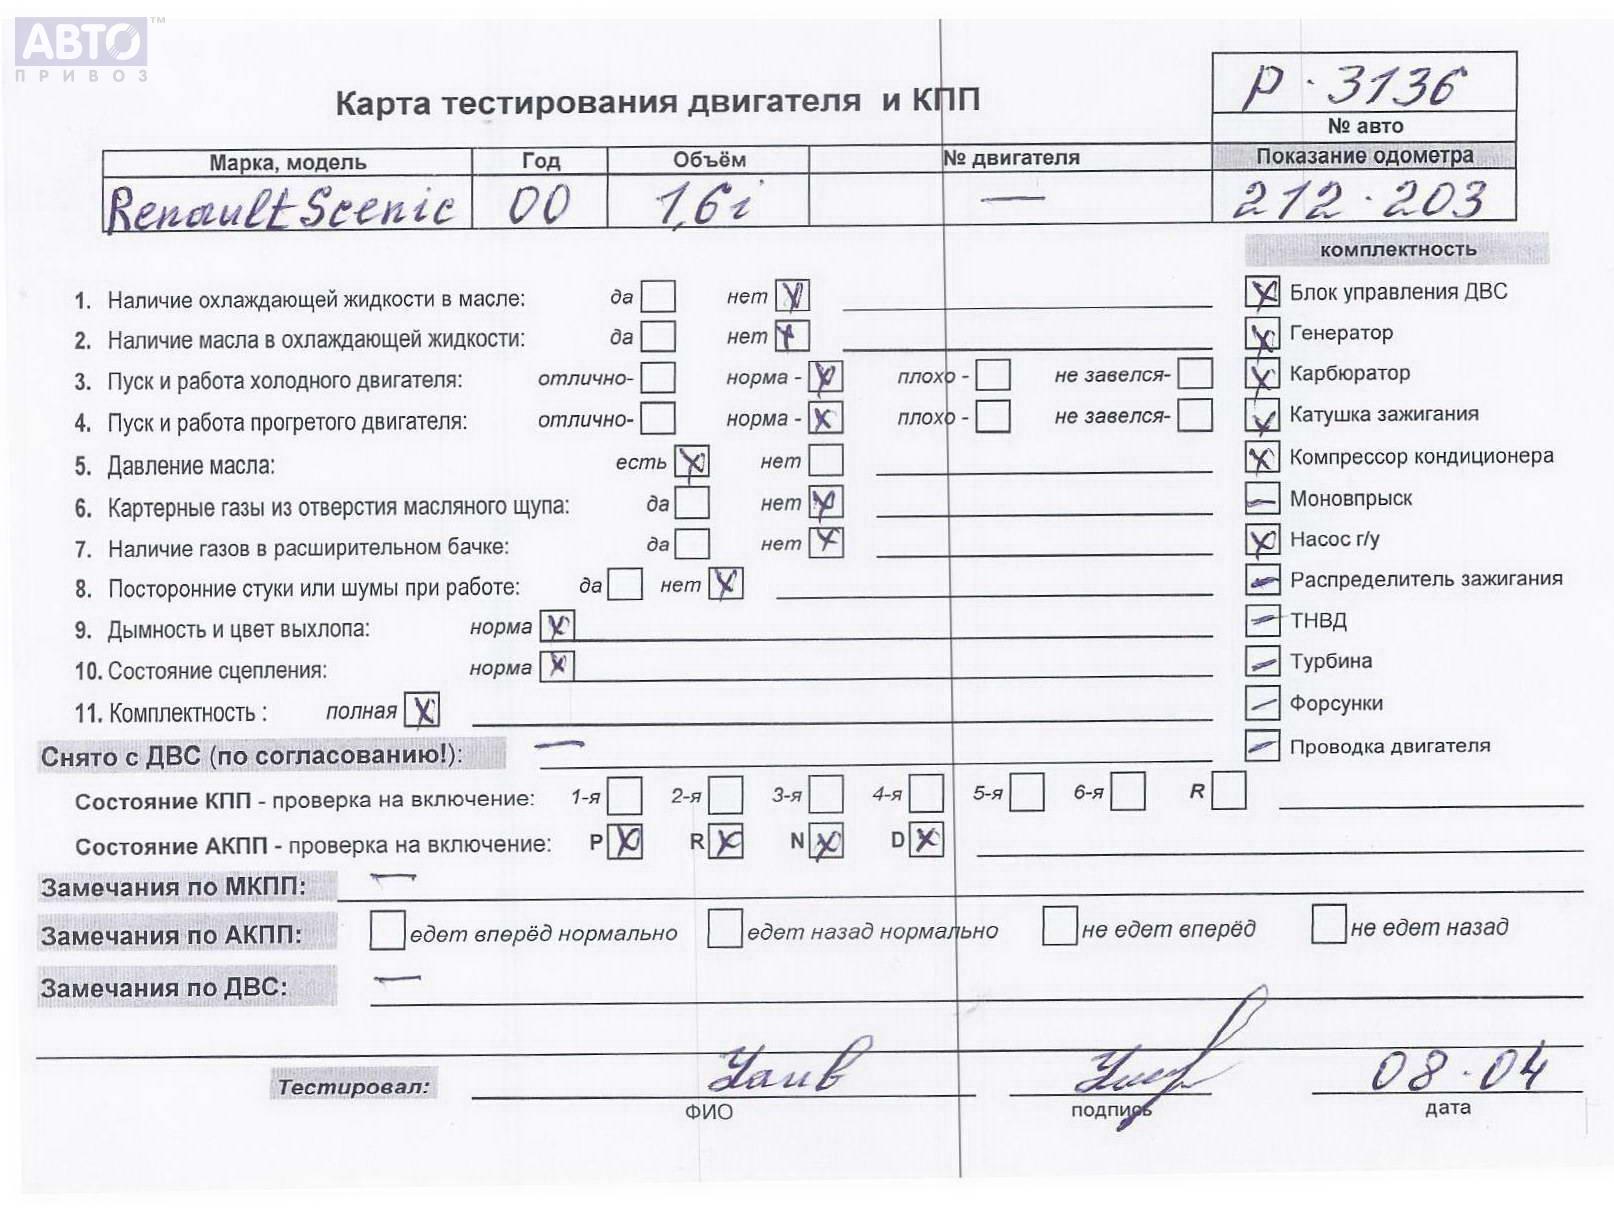 АВТО™
ПРИВОЗ
Р · 3136
Карта тестирования двигателя и КПП
№ авто
Марка, модель Год Объём № двигателя Показание одометра
Renault Scenic 00 1,6i — 212 · 203
комплектность
1. Наличие охлаждающей жидкости в масле: да нет Блок управления ДВС
2. Наличие масла в охлаждающей жидкости: да нет Генератор
3. Пуск и работа холодного двигателя: отлично- норма - плохо - не завелся- Карбюратор
4. Пуск и работа прогретого двигателя: отлично- норма - плохо - не завелся- Катушка зажигания
5. Давление масла: есть нет Компрессор кондиционера
6. Картерные газы из отверстия масляного щупа: да нет Моновпрыск
7. Наличие газов в расширительном бачке: да нет Насос г/у
8. Посторонние стуки или шумы при работе: да нет Распределитель зажигания
9. Дымность и цвет выхлопа: норма ТНВД
10. Состояние сцепления: норма Турбина
11. Комплектность : полная Форсунки
Снято с ДВС (по согласованию!): — Проводка двигателя
Состояние КПП - проверка на включение: 1-я 2-я 3-я 4-я 5-я 6-я R
Состояние АКПП - проверка на включение: P R N D
Замечания по МКПП: —
Замечания по АКПП: едет вперёд нормально едет назад нормально не едет вперёд не едет назад
Замечания по ДВС: —
Тестировал: 08 · 04
ФИО подпись дата